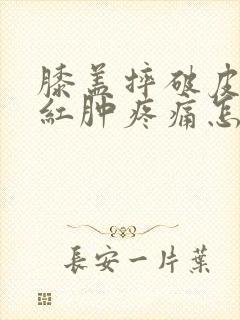 膝盖摔破皮
红肿疼痛怎
長安一片葉